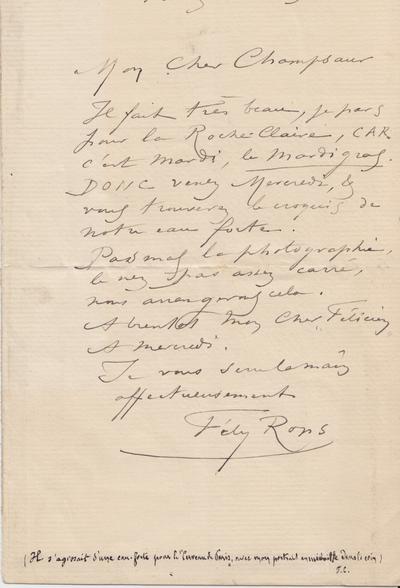 Mon Cher Champsaur
Il fait très beau, je pars
pour la Roche-Claire, CAR
c'est Mardi, le Mardi gras.
DONC venez Mercredi, &
vous trouverez le croquis de
notre eau forte.
Pas mal la photographie,
le nez pas assez carré,
nous arrangerons cela.
A bientôt mon Cher Félicien
A mercredi.
Je vous serre la main
affectueusement
Fély Rops
(Il s'agissait d'une eau-forte pour l'Enterrement de Paris, avec mon portrait en médaille dans le coin)
F.C.